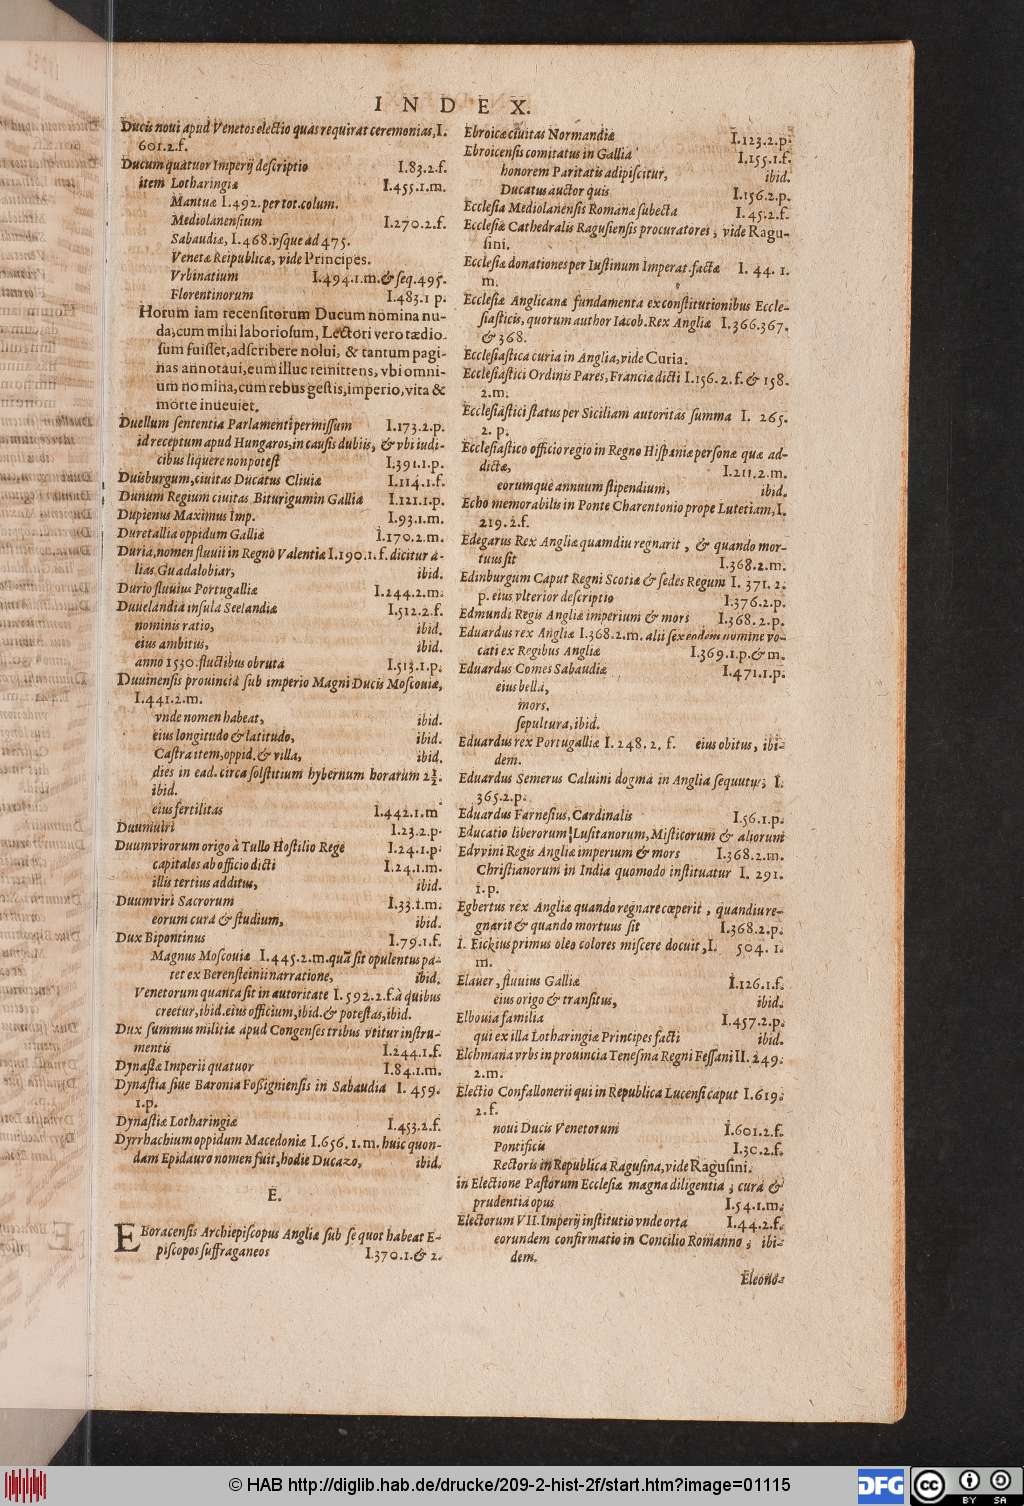 INDEX.
Ducis noui apud Venetos electio quas requirat ceremonias, I.
601.2.f.
Ducum quatuor Imperij descriptio I.83.2.f.
item Lotharingiæ I.455.1.m.
Mantuæ I.492. per tot. colum.
Mediolanensium I.270.2.f.
Sabaudiæ, I.468. vsque ad 475.
Venetæ Reipublicæ, vide Principes.
Vrbinatium I.494.1.m. & seq. 495.
Florentinorum I.483.1 p.
Horum iam recensitorum Ducum nomina nu-
da, cum mihi laboriosum, Lectori vero tædio-
sum fuisset, adscribere nolui, & tantum pagi-
nas annotaui, eum illuc remittens, vbi omni-
um nomina, cum rebus gestis, imperio, vita &
morte inueniet.
Duellum sententia Parlamenti permissum I.173.2.p.
id receptum apud Hungaros, in causis dubiis, & vbi iudi-
cibus liquere non potest I.391.1.p.
Duisburgum, ciuitas Ducatus Cliuiæ I.114.1.f.
Dunum Regium ciuitas Biturigum in Gallia I.121.1.p.
Dupienus Maximus Imp. I.93.1.m.
Duretallia oppidum Galliæ I.170.2.m.
Duria, nomen fluuii in Regno Valentiæ I.190.1.f. dicitur a-
lias Guadalobiar, ibid.
Durio fluuius Portugalliæ I.244.2.m.
Duuelandia insula Seelandiæ I.512.2.f.
nominis ratio, ibid.
eius ambitus, ibid.
anno 1530. fluctibus obruta I.513.1.p.
Duuinensis prouincia sub imperio Magni Ducis Moscouiæ,
I.441.2.m.
vnde nomen habeat, ibid.
eius longitudo & latitudo, ibid.
Castra item, oppid. & villa, ibid.
dies in ead. circa solstitium hybernum horarum 2½.
ibid.
eius fertilitas I.442.1.m
Duumuiri I.23.2.p.
Duumvirorum origo à Tullo Hostilio Rege I.24.1.p.
capitales ab officio dicti I.24.1.m.
illis tertius additus, ibid.
Duumviri Sacrorum I.33.1.m.
eorum cura & studium, ibid.
Dux Bipontinus I.79.1.f.
Magnus Moscouiæ I.445.2.m. quã sit opulentus pa-
tet ex Berensteinii narratione, ibid.
Venetorum quanta sit in autoritate I.592.2.f. à quibus
creetur, ibid. eius officium, ibid. & potestas, ibid.
Dux summus militiæ apud Congenses tribus vtitur instru-
mentis I.244.1.f.
Dynastæ Imperii quatuor I.84.1.m.
Dynastia siue Baronia Fossigniensis in Sabaudia I. 459.
1.p.
Dynastiæ Lotharingiæ I.453.2.f.
Dyrrhachium oppidum Macedoniæ I.656.1.m. huic quon-
dam Epidauro nomen fuit, hodie Ducazo, ibid.
E.
EBoracensis Archiepiscopus Angliæ sub se quot habeat E-
piscopos suffraganeos I.370.1.& 2.
Ebroicæ ciuitas Normandiæ I.123.2.p.
Ebroicensis comitatus in Gallia I.155.1.f.
honorem Paritatis adipiscitur, ibid.
Ducatus auctor quis I.156.2.p.
Ecclesia Mediolanensis Romanæ subecta I.45.2.f.
Ecclesiæ Cathedralis Ragusiensis procuratores, vide Ragu-
sini.
Ecclesiæ donationes per Iustinum Imperat. factæ I. 44. 1.
m.
Ecclesiæ Anglicanæ fundamenta ex constitutionibus Eccle-
siasticis, quorum author Iacob. Rex Angliæ I.366.367.
& 368.
Ecclesiastica curia in Anglia, vide Curia.
Ecclesiastici Ordinis Pares, Franciæ dicti I.156.2.f. & 158.
2.m.
Ecclesiastici status per Siciliam autoritas summa I. 265.
2. p.
Ecclesiastico officio regio in Regno Hispaniæ personæ quæ ad-
dictæ, I.211.2.m.
eorumque annuum stipendium, ibid.
Echo memorabilis in Ponte Charentonio prope Lutetiam, I.
219.2.f.
Edegarus Rex Angliæ quamdiu regnarit, & quando mor-
tuus sit I.368.2.m.
Edinburgum Caput Regni Scotiæ & sedes Regum I. 371. 2.
p. eius vlterior descriptio I.376.2.p.
Edmundi Regis Angliæ imperium & mors I.368.2.p.
Eduardus rex Angliæ I.368.2.m. alii sex eodem nomine vo-
cati ex Regibus Angliæ I.369.1.p.& m.
Eduardus Comes Sabaudiæ I.471.1.p.
eius bella,
mors.
sepultura, ibid.
Eduardus rex Portugalliæ I. 248. 2. f. eius obitus, ibi-
dem.
Eduardus Semerus Caluini dogma in Anglia sequutus, I.
365.2.p.
Eduardus Farnesius, Cardinalis I.56.1.p.
Educatio liberorum Lusitanorum, Misticorum & aliorum
Edvvini Regis Angliæ imperium & mors I.368.2.m.
Christianorum in India quomodo instituatur I. 291.
1.p.
Egbertus rex Angliæ quando regnare cœperit, quandiu re-
gnarit & quando mortuus sit I.368.2.p.
I. Eickius primus oleo colores miscere docuit, I. 504. 1.
m.
Elauer, fluuius Galliæ I.126.1.f.
eius origo & transitus, ibid.
Elbouia familia I.457.2.p.
qui ex illa Lotharingiæ Principes facti ibid.
Elchmana vrbs in prouincia Tenesma Regni Fessani II. 249.
2.m.
Electio Confallonerii qui in Republica Lucensi caput I.619.
2.f.
noui Ducis Venetorum I.601.2.f.
Pontificis I.30.2.f.
Rectoris in Republica Ragusina, vide Ragusini.
in Electione Pastorum Ecclesiæ magna diligentia, cura &
prudentia opus I.54.1.m.
Electorum VII. Imperij institutio vnde orta I.44.2.f.
eorundem confirmatio in Concilio Romanno, ibi-
dem.
Eleono-
© HAB http://diglib.hab.de/drucke/209-2-hist-2f/start.htm?image=01115
DFG
cc
BY SA